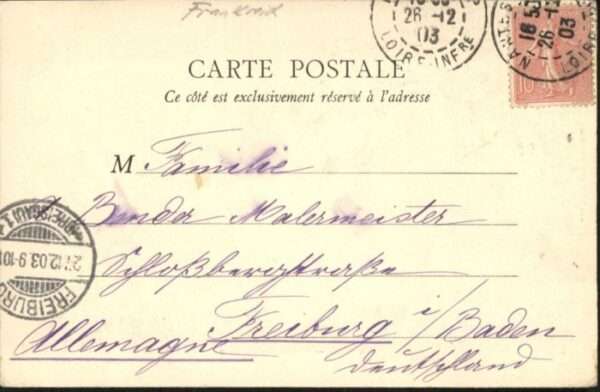 Frankreich
26-12
03
LOIRE-INFRE
NANTES
16 53
26-12
03
LOIRE
10
CARTE POSTALE
Ce côté est exclusivement réservé à l'adresse
M Familie
Bender Malermeister
Schloßbergstraße
Freiburg i/Baden
Allemagne
Deutschland
(BREISGAU) 1
27.12.03.9-10V
FREIBURG